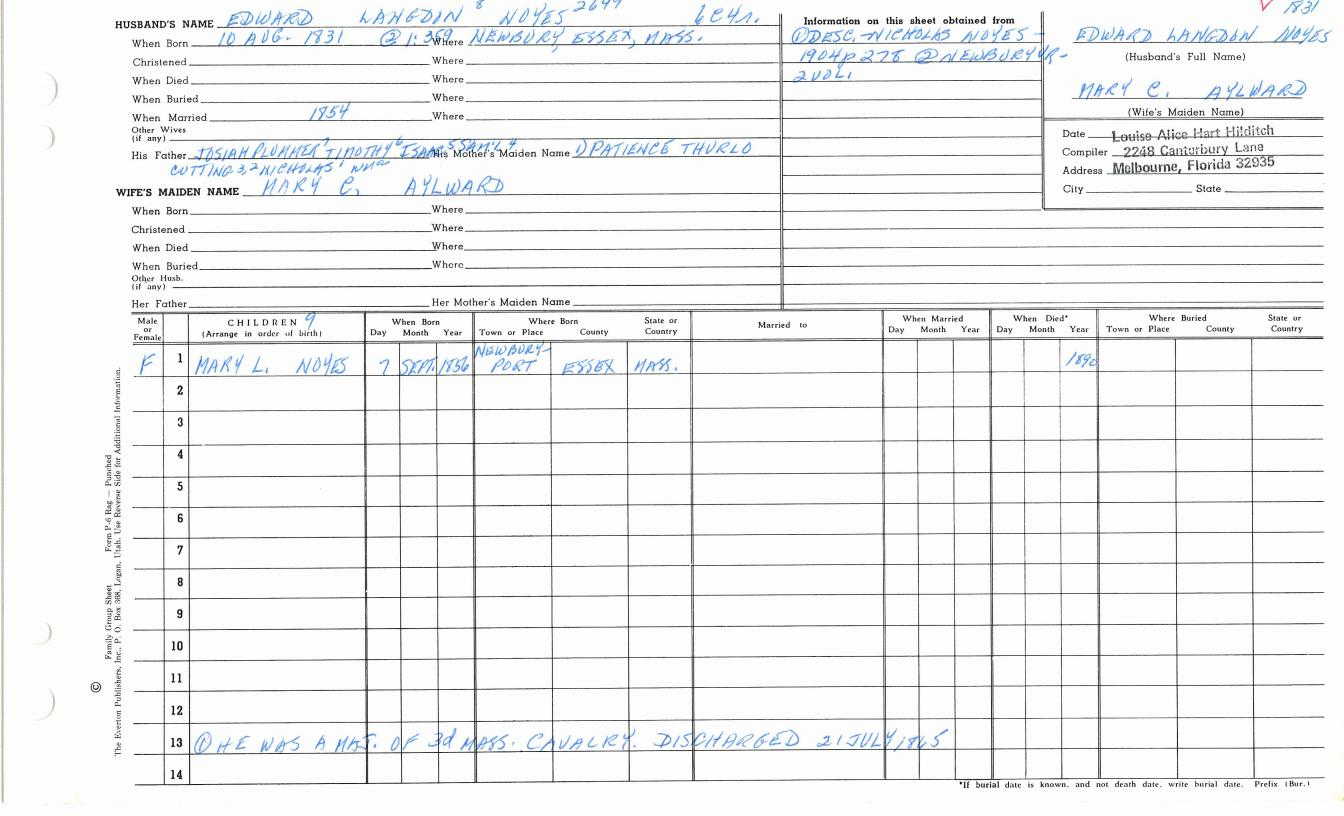 HUSBAND'S NAME EDWARD LANGDON 8 NOYES 2649 6EGn.
When Born 10 AUG. 1831 @ 1:369 Where NEWBURY, ESSEX, MASS.
Christened Where
When Died Where
When Buried Where
When Married 1854 Where
Other Wives
(if any)
His Father JOSIAH PLUMMER 7 TIMOTHY 6 ISAAC 5 SAM'L 4 His Mother's Maiden Name 1) PATIENCE THURLO
CUTTING 3, 2 NICHOLAS 1
WIFE'S MAIDEN NAME MARY C. AYLWARD
When Born Where
Christened Where
When Died Where
When Buried Where
Other Husb.
(if any)
Her Father Her Mother's Maiden Name
Information on this sheet obtained from
① DESC. - NICHOLAS NOYES -
1904 p 278 ② NEWBURY VR -
2 VOL.
1831
EDWARD LANGDON NOYES
(Husband's Full Name)
MARY C. AYLWARD
(Wife's Maiden Name)
Date Louise Alice Hart Hilditch
Compiler 2248 Canterbury Lane
Address Melbourne, Florida 32935
City State
Male or Female CHILDREN 9 (Arrange in order of birth) When Born Day Month Year Where Born Town or Place County State or Country Married to When Married Day Month Year When Died* Day Month Year Where Buried Town or Place County State or Country
F 1 MARY L. NOYES 7 SEPT. 1856 NEWBURY-PORT ESSEX MASS. 1890
2
3
4
5
6
7
8
9
10
11
12
13 ① HE WAS A MAJ. OF 3d MASS. CAVALRY. DISCHARGED 21 JULY, 1865
14
*If burial date is known, and not death date, write burial date. Prefix (Bur.)
© Family Group Sheet Form P-6 Rag — Punched
The Everton Publishers, Inc., P. O. Box 368, Logan, Utah. Use Reverse Side for Additional Information.